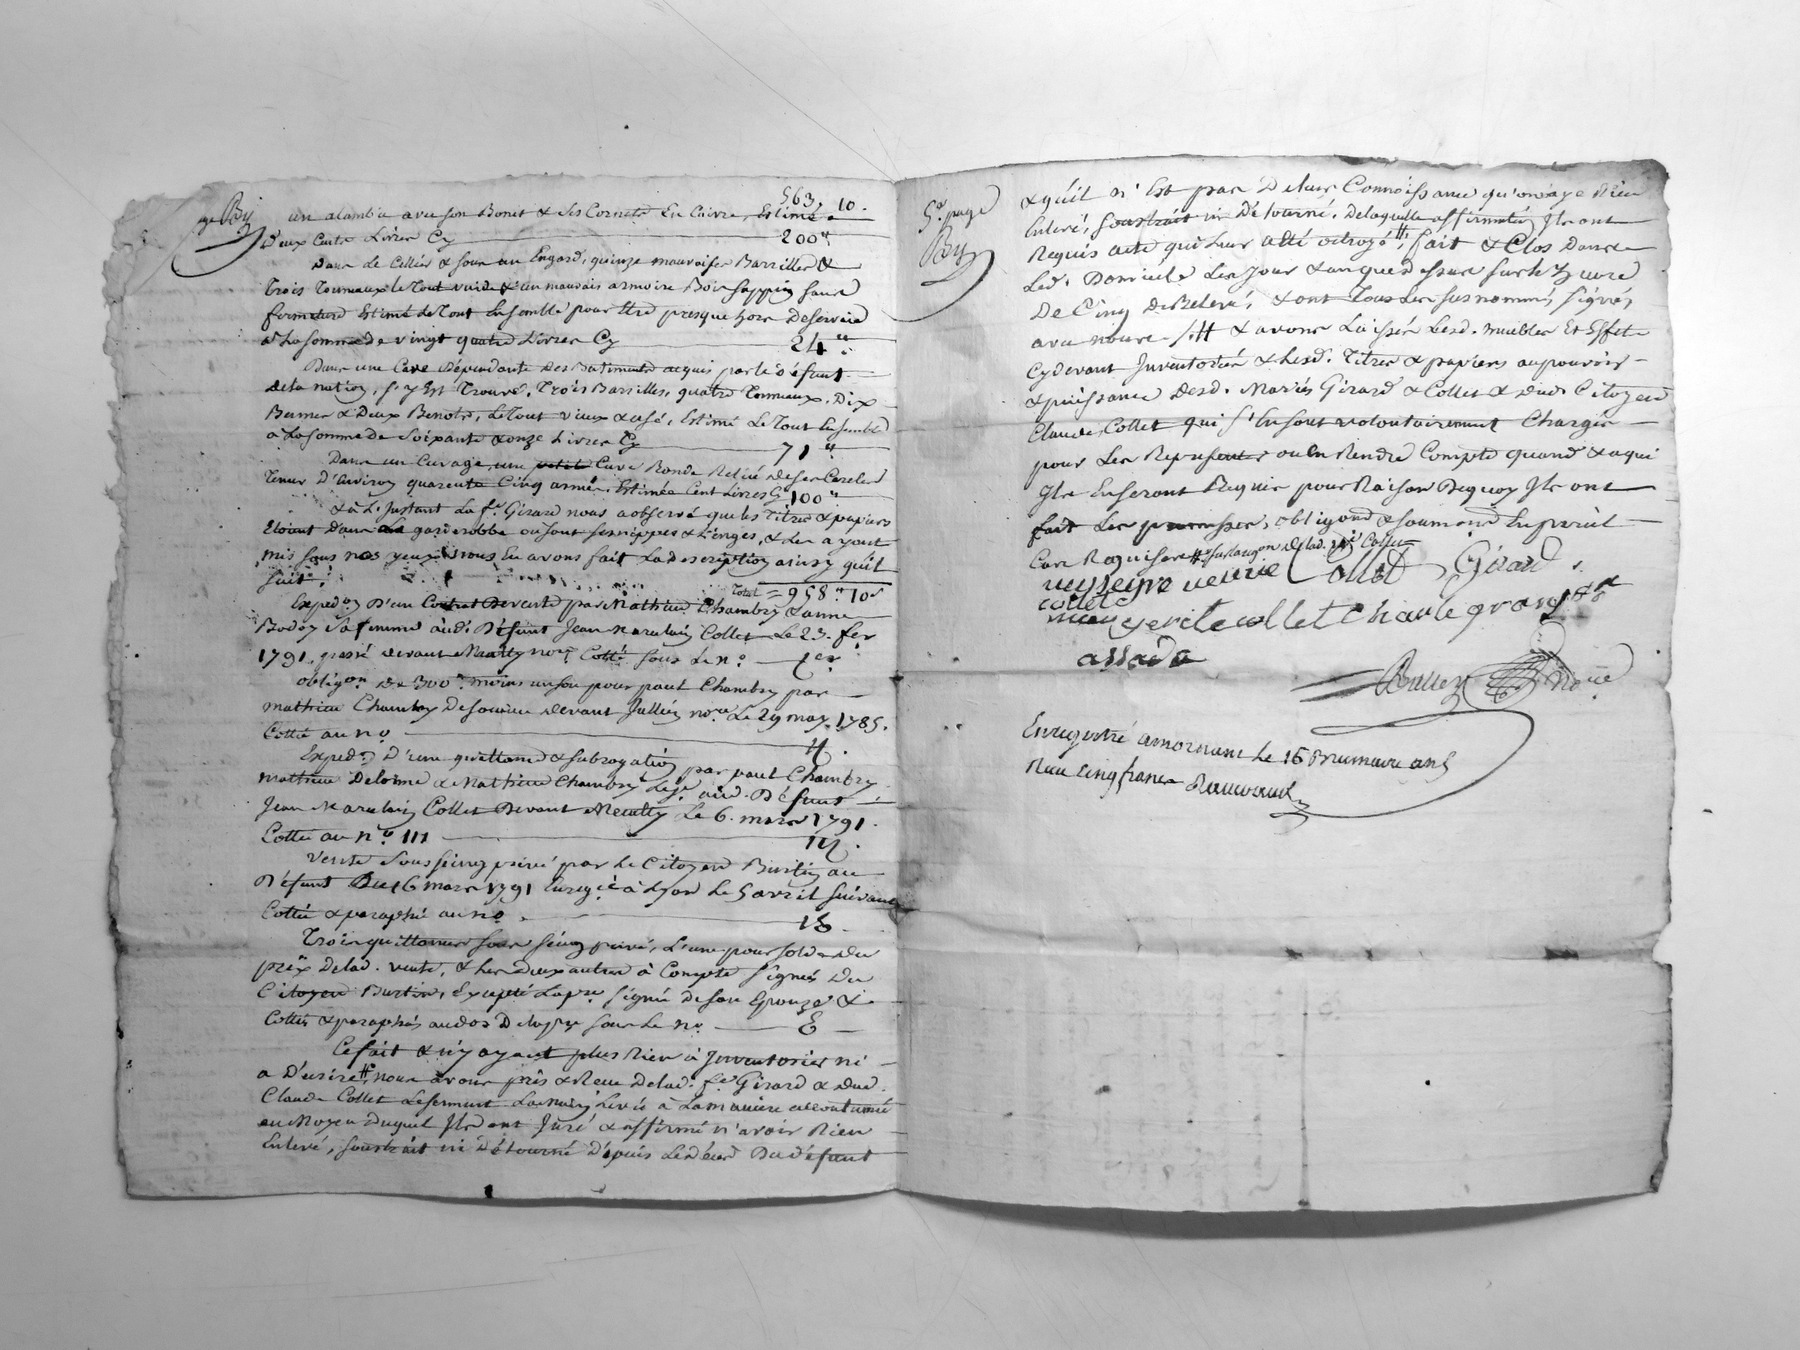 563" 10.
un alambic avec son Bonet & ses Cornets En Cuivre, Estimé
Deux Cents Livres Cy 200"
Dans Le Cellier & sous un Engard, quinze mauvaises Barrilles &
Trois Tonneaux le Tout vuide & un mauvais armoire Bois sappin sans
fermeture Estimé Le Tout Ensemble pour Etre presque hors De service
a La somme de vingt quatre Livres Cy 24"
Dans une Cave Dépendante des Batiments acquis par le Défunt
de la nation, s'y Est Trouvé, Trois Barrilles, quatre Tonneaux, Dix
Bennes & Deux Benots, Le Tout vieux & usé, Estimé Le Tout Ensemble
a La somme de Soixante & onze Livres Cy 71"
Dans un Cuvage une petite Cuve Ronde Reliée de ses Cercles
Tenur D'Environ quarente Cinq année, Estimée Cent Livres Cy 100"
& à L'Instant La fe. Girard nous a observé que les Titres & papiers
Etoient Dans La garderobbe ou sont ses nippes & Linges, & Les ayant
mis sous nos yeux nous En avons fait La description ainsy qu'il
suit.
Total = 958" 10s
Expedon D'un Contrat De vente par Mathieu Chambry & anne
Bodoy Sa femme audt. Défunt Jean Marulain Collet Le 23. fer
1791, passé devant Neantly nore. Cotté sous Le no. 1er
obligon. de 300" moins un sou pour paul Chambry par
mathieu Chambry De souvieu devant Jullien nore Le 29 may 1785.
Cotté au no. 11.
Expedon D'une quittance & subrogation par paul Chambry
mathieu Delorme & Mathieu Chambry audt. Défunt
Jean Marulain Collet Devant Neantly Le 6. mars 1791.
Cotté au no. 111
Vente sous seing privé par Le Citoyen Burtin au
Défunt Du 16 mars 1791 Enregié à Lyon Le 5 avril suivant
Cotté & paraphé au no.
Trois quittances sous seing privé, L'une pour solde du
prix De lad. vente, & Les Deux autres à Compte signés Du
Citoyen Burtin, Excepté La pre. signée de son Epouze &
Cottés & paraphés au dos sous Le no. E
Ce fait & n'y ayant plus Rien à Inventorier ni
a D'ecrire # nous avons pris & Reçu De lad. fe. Girard & dud.
Claude Collet Le serment La main Levée a La maniere accoutumée
au Moyen Duquel Ils ont Juré & affirmé n'avoir Rien
Enlevé, soustrait ni Détourné Dépuis Le décès Du défunt
5e. page
& qu'il n'Est pas De leur Connoissance qu'on aye Rien
Enlevé, soustrait ni Détourné. De laquelle affirmation Ils ont
Requis acte qui Leur a été octroyé #, fait & Clos Dans
Led. Domicile Les Jour & an que dessus sur les heure
De Cinq de Relevé, & ont Tous Les susnommés signés,
avec nous # & avons Laissés Lesd. meubles Et Effets
Cydevant Inventoriés & Lesd. Titres & papiers au pouvoir
& puissance Desd. Mariés Girard & Collet & dud. Citoyen
Claude Collet qui s'En sont volontairement Chargés
pour Les Representer ou En Rendre Compte quand & a qui
Ils En seront Requis pour Raison De quoy Ils ont
fait Les promesses, obligons & soumons En pareil
Cas Requises
veuve Collet Girard
collet
Collet charle grange
Enregistré a mornant Le 16 Brumaire an 5
Reçu cinq francs